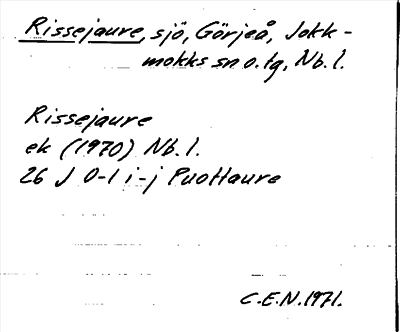 Rissejaure, sjö, Görjeå, Jokk-
mokks sn o. tg, Nb. l.
Rissejaure
ek (1970) Nb. l.
26 J 0-1 i-j Puottaure
C.E.N. 1971.